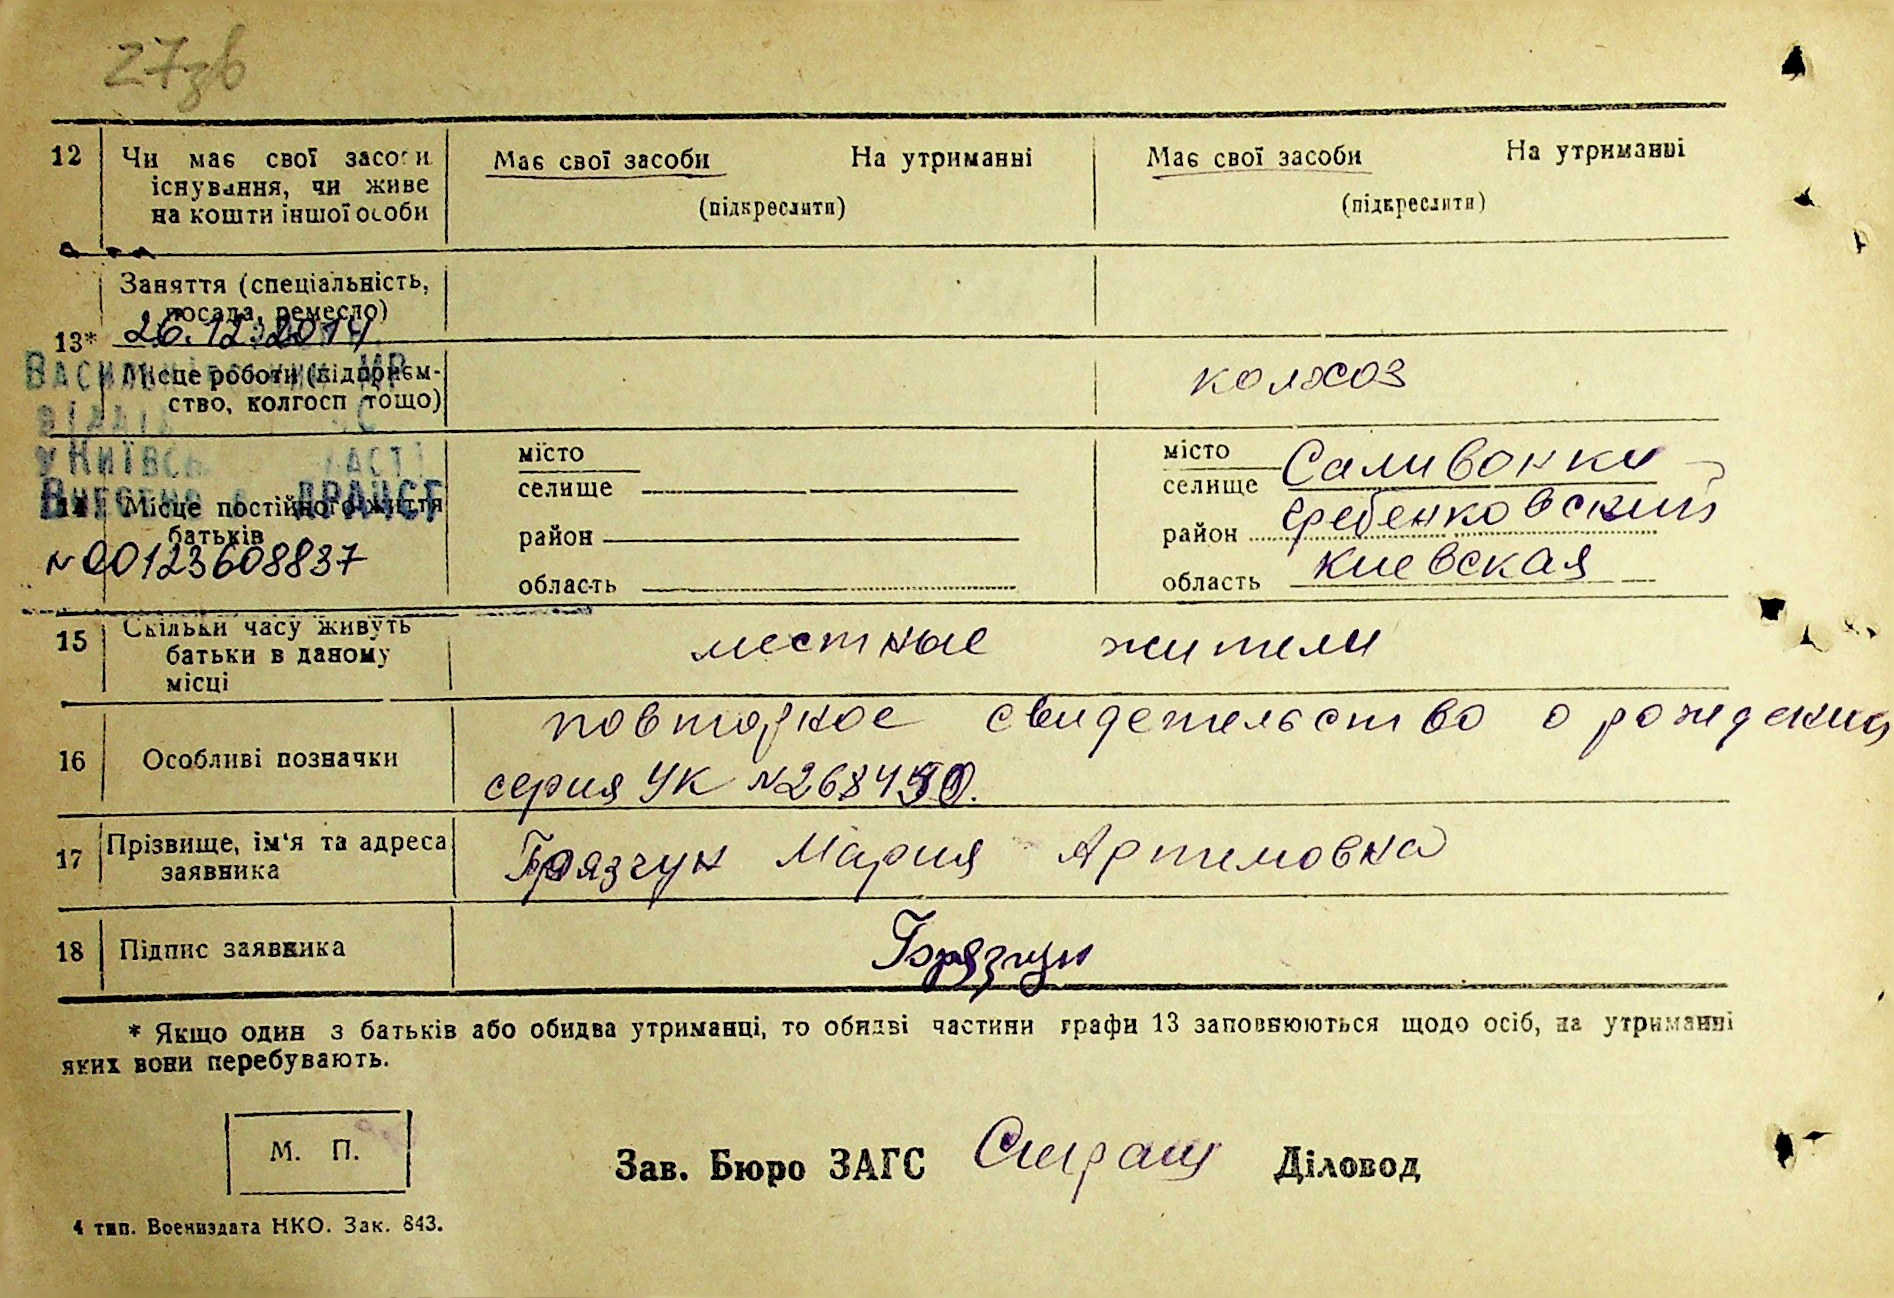 27зв
12 Чи має свої засоби Має свої засоби На утриманні Має свої засоби На утриманні
існування, чи живе (підкреслити) (підкреслити)
на кошти іншої особи
Заняття (спеціальність,
посада, ремесло)
13* 26.12.2014
Місце роботи (підприєм- колхоз
ство, колгосп тощо)
місто місто Саливонки
селище селище
14 Місце постійного життя
батьків район район Гребенковский
N 00123608837
область область Киевская
15 Скільки часу живуть местные жители
батьки в даному
місці
повторное свидетельство о рождении
16 Особливі позначки
серия УК N
17 Прізвище, ім'я та адреса Мария Артемовна
заявника
18 Підпис заявника
* Якщо один з батьків або обидва утриманці, то обидві частини графи 13 заповнюються щодо осіб, на утриманні
яких вони перебувають.
М. П.
Зав. Бюро ЗАГС Діловод
4 тип. Воениздата НКО. Зак. 843.